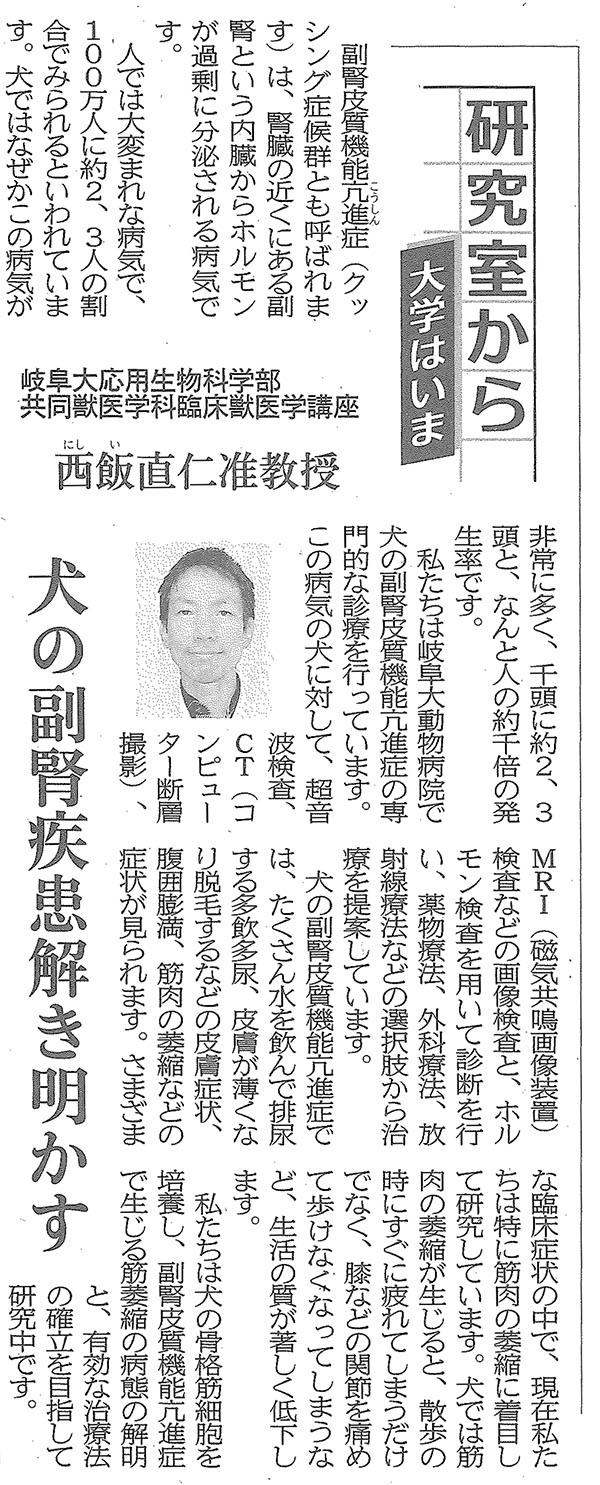 研究室から
大学はいま
副腎皮質機能亢進症（クッ
こうしん
シング症候群とも呼ばれま
す）は、腎臓の近くにある副
腎という内臓からホルモン
が過剰に分泌される病気で
す。
人では大変まれな病気で、
100万人に約2、3人の割
合でみられるといわれていま
す。犬ではなぜかこの病気が
岐阜大応用生物科学部
共同獣医学科臨床獣医学講座
にし い
西飯直仁准教授
犬の副腎疾患解き明かす
非常に多く、千頭に約2、3
頭と、なんと人の約千倍の発
生率です。
私たちは岐阜大動物病院で
犬の副腎皮質機能亢進症の専
門的な診療を行っています。
この病気の犬に対して、超音
波検査、
CT（コ
ンピュー
ター断層
撮影）、
MRI（磁気共鳴画像装置）
検査などの画像検査と、ホル
モン検査を用いて診断を行
い、薬物療法、外科療法、放
射線療法などの選択肢から治
療を提案しています。
犬の副腎皮質機能亢進症で
は、たくさん水を飲んで排尿
する多飲多尿、皮膚が薄くな
り脱毛するなどの皮膚症状、
腹囲膨満、筋肉の萎縮などの
症状が見られます。さまざま
な臨床症状の中で、現在私た
ちは特に筋肉の萎縮に着目し
て研究しています。犬では筋
肉の萎縮が生じると、散歩の
時にすぐに疲れてしまうだけ
でなく、膝などの関節を痛め
て歩けなくなってしまうな
ど、生活の質が著しく低下し
ます。
私たちは犬の骨格筋細胞を
培養し、副腎皮質機能亢進症
で生じる筋萎縮の病態の解明
と、有効な治療法
の確立を目指して
研究中です。